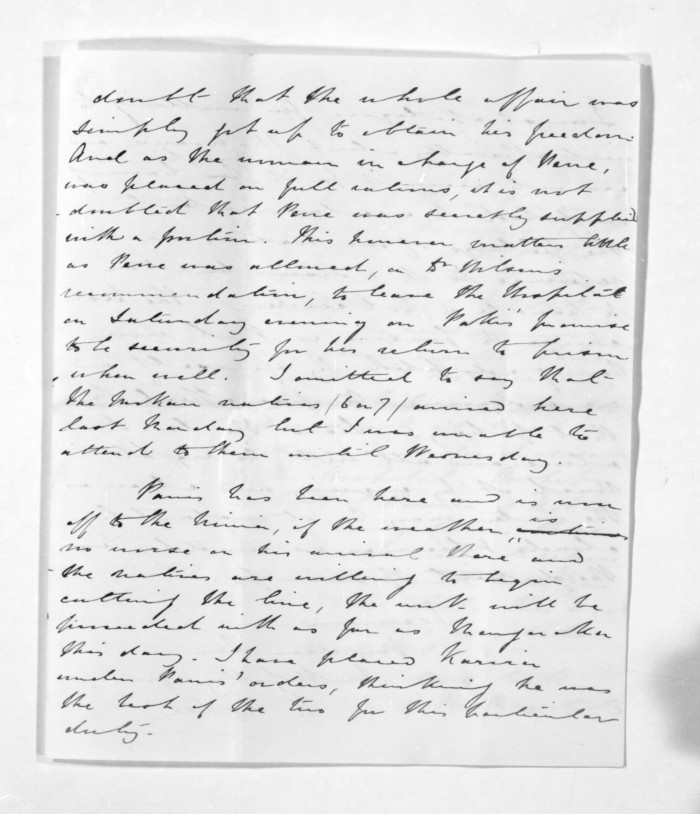 doubt that the whole affair was
simply got up to obtain his freedom.
And as the woman in charge of Pene,
was placed on full rations, it is not
doubted that Pene was secretly supplied
with a portion. This however matters little
as Pene was allowed, on Dr Wilson's
recommendation, to leave the Hospital
on Saturday evening on promise
to be security for his return to prison
when well. I omitted to say that
the natives (6 or 7) arrived here
last Monday but I was unable to
attend to them until Wednesday.
has been here and is now
off to the if the weather is
no worse on his arrival there and
the natives are willing to begin
cutting the line, the work will be
proceeded with as far as
this day. I have placed
under orders, thinking he was
the best of the two for this particular
duty.